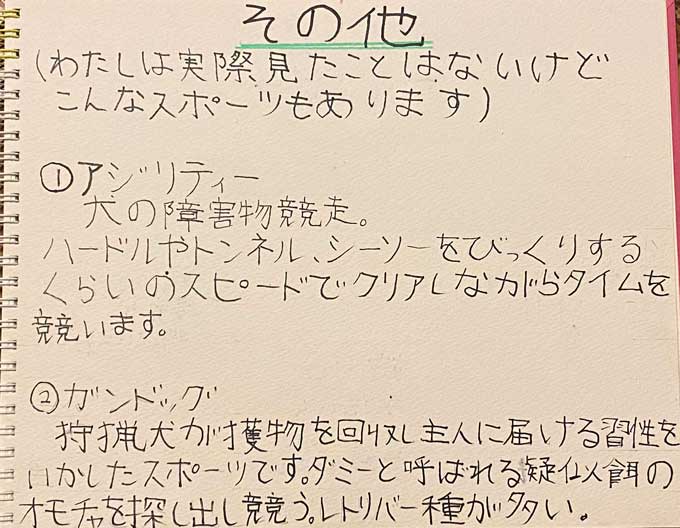 その他
(わたしは実際見たことはないけど
こんなスポーツもあります)
①アジリティー
犬の障害物競走。
ハードルやトンネル、シーソーをびっくりする
くらいのスピードでクリアしながらタイムを
競います。
②ガンドッグ
狩猟犬が獲物を回収し主人に届ける習性を
いかしたスポーツです。ダミーと呼ばれる疑似餌の
オモチャを探し出し競う。レトリバー種が多い。